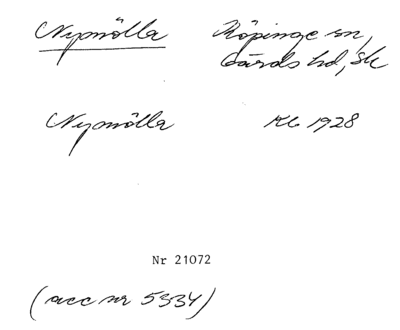 Nymölla Köpinge sn,
Gärds hd, Sk
Nymölla Kb 1928
Nr 21072
(acc nr 5334)